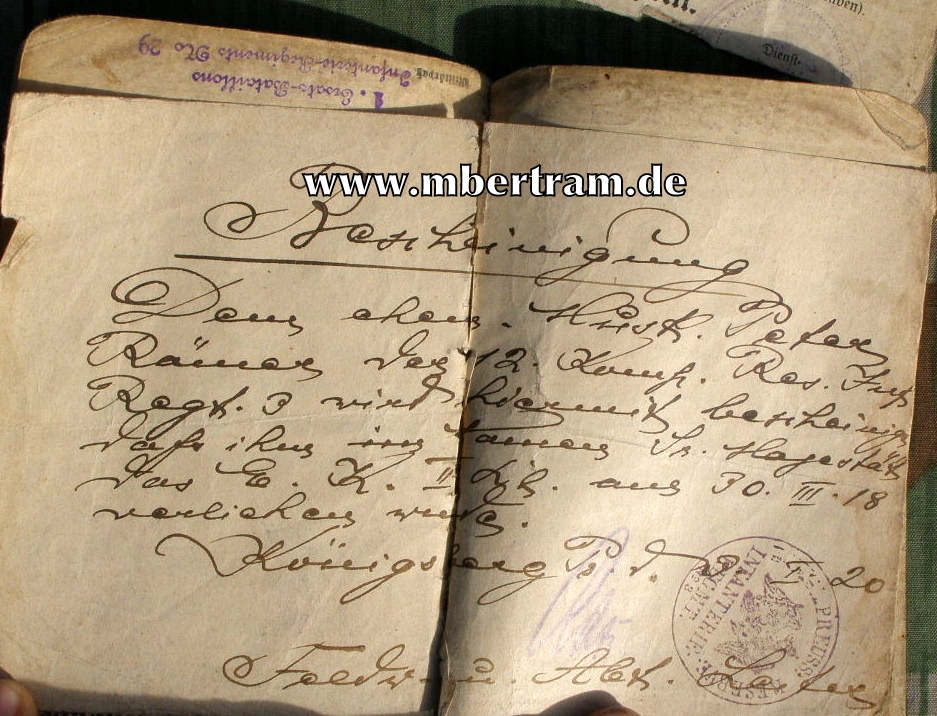 Dienst-
1. Ersatz-Bataillons
Infanterie-Regiments No 29
www.mbertram.de
Bescheinigung
Dem ehem. Musk. Peter
Rämer der 12. Komp. Res. Inf.
Regt. 3 wird hiermit bescheinigt
daß ihm im Namen Sr. Majestät
das E. K. II Kl. am 30. III. 18
verliehen wurde.
Königsberg Pr. d. 20
Feldw. u. Abt.
PREUSS.
INFANTERIE
REGMT.
RESERVE